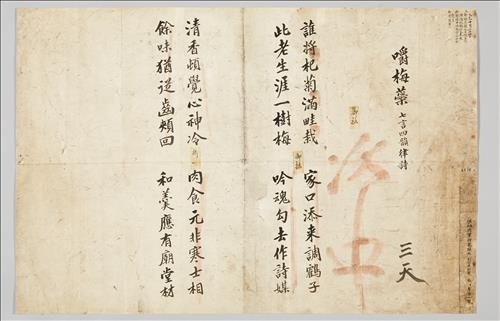 嚼梅蘂 七言四韻律詩
三天
次中
誰將杞菊滿畦栽
此老生涯一樹梅
家口添来調鶴子
吟魂勾去作詩媒
清香頓覺心神冷
餘味猶從齒頰回
肉食元非寒士相
和羹應有廟堂材